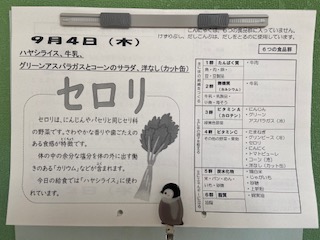 9月4日（木）
ハヤシライス、牛乳、
グリーンアスパラガスとコーンのサラダ、洋なし（カット缶）
セロリ
セロリは、にんじんやパセリと同じセリ科
の野菜です。さわやかな香りや歯ごたえの
ある食感が特徴です。
体の中の余分な塩分を体の外に出す働き
のある「カリウム」などが含まれます。
今日の給食では「ハヤシライス」に使わ
れています。
6つの食品群
1群 たんぱく質
・牛肉
2群 無機質
・牛乳
3群 ビタミンA
（カロテン）
・にんじん
・グリーン
アスパラガス（冷）
4群 ビタミンC
・たまねぎ
・グリンピース（冷）
・セロリ
・にんにく
・トマトピューレ
・コーン（冷）
・洋なし（カット缶）
5群 炭水化物
・精白米
・じゃがいも
・砂糖
・上新粉
6群 脂質